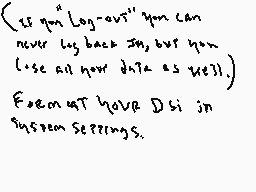 (If you "Log-out" you can
never log back In, but you
lose all your data as well.)
Format YOUR DSi in
System Settings.